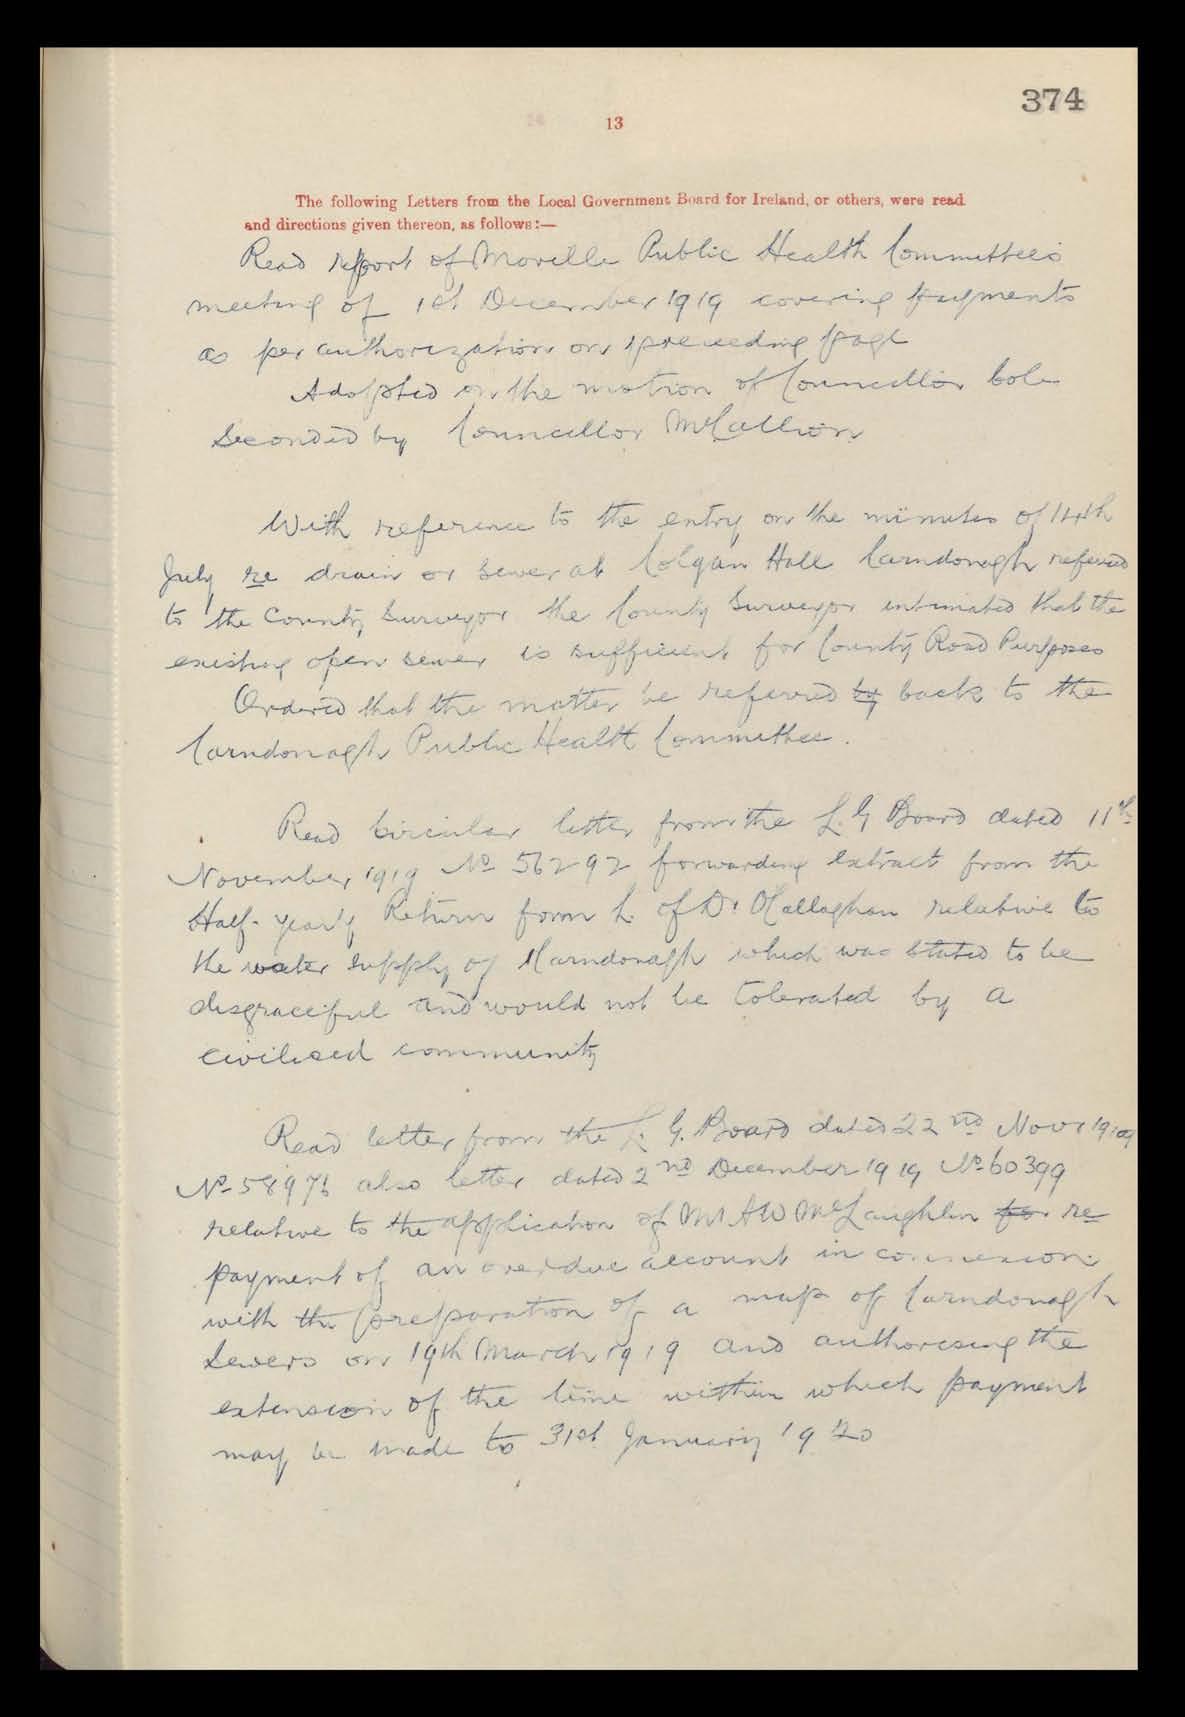 374
13
The following Letters from the Local Government Board for Ireland, or others, were read
and directions given thereon, as follows:—
Read report of Moville Public Health Committee's
meeting of 1st December 1919 covering payments
as per authorization on preceeding page
Adopted on the motion of Councillor Cole
Seconded by Councillor McCallion
With reference to the entry on the minutes of 14th
July re drain or sewer at Colgan Hall Carndonagh referred
to the County Surveyor the County Surveyor intimated that the
existing open sewer is sufficient for County Road Purposes
Ordered that the matter be referred by back to the
Carndonagh Public Health Committee.
Read Circular letter from the L. G Board dated 11th
November 1919 No 56292 forwarding extract from the
Half-yearly Return form L. of Dr O'Callaghan relative to
the water supply of Carndonagh which was stated to be
disgraceful and would not be tolerated by a
civilised community
Read letter from the L. G. Board dated 22nd Novr 1919
No 58976 also letter dated 2nd December 1919 No 60399
relative to the application of Mr A W McLaughlin for re
payment of an overdue account in connexion
with the preparation of a map of Carndonagh
Sewers on 19th March 1919 and authorising the
extension of the time within which payment
may be made to 31st January 1920